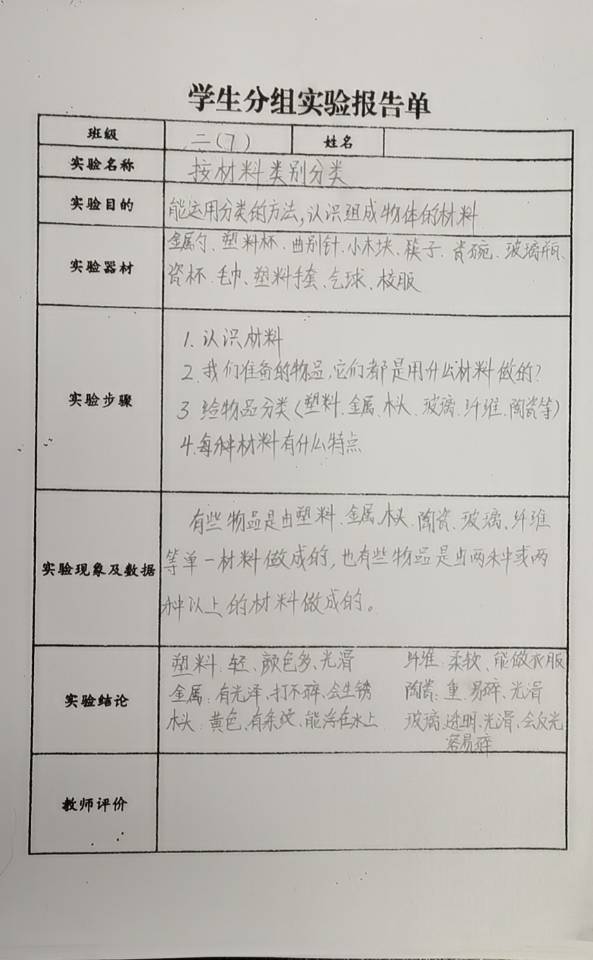 学生分组实验报告单
班级 二(7) 姓名
实验名称 按材料类别分类
实验目的 能运用分类的方法,认识组成物体的材料
实验器材 金属勺、塑料杯、曲别针、小木块、筷子、瓷碗、玻璃瓶、
瓷杯、毛巾、塑料手套、气球、校服
实验步骤
1.认识材料
2.我们准备的物品,它们都是用什么材料做的?
3.给物品分类(塑料、金属、木头、玻璃、纤维、陶瓷等)
4.每种材料有什么特点
实验现象及数据
有些物品是由塑料、金属、木头、陶瓷、玻璃、纤维
等单一材料做成的,也有些物品是由两种或两
种以上的材料做成的。
实验结论
塑料:轻、颜色多、光滑 纤维:柔软、能做衣服
金属:有光泽、打不碎、会生锈 陶瓷:重、易碎、光滑
木头:黄色、有条纹、能浮在水上 玻璃:透明、光滑、会反光
容易碎
教师评价